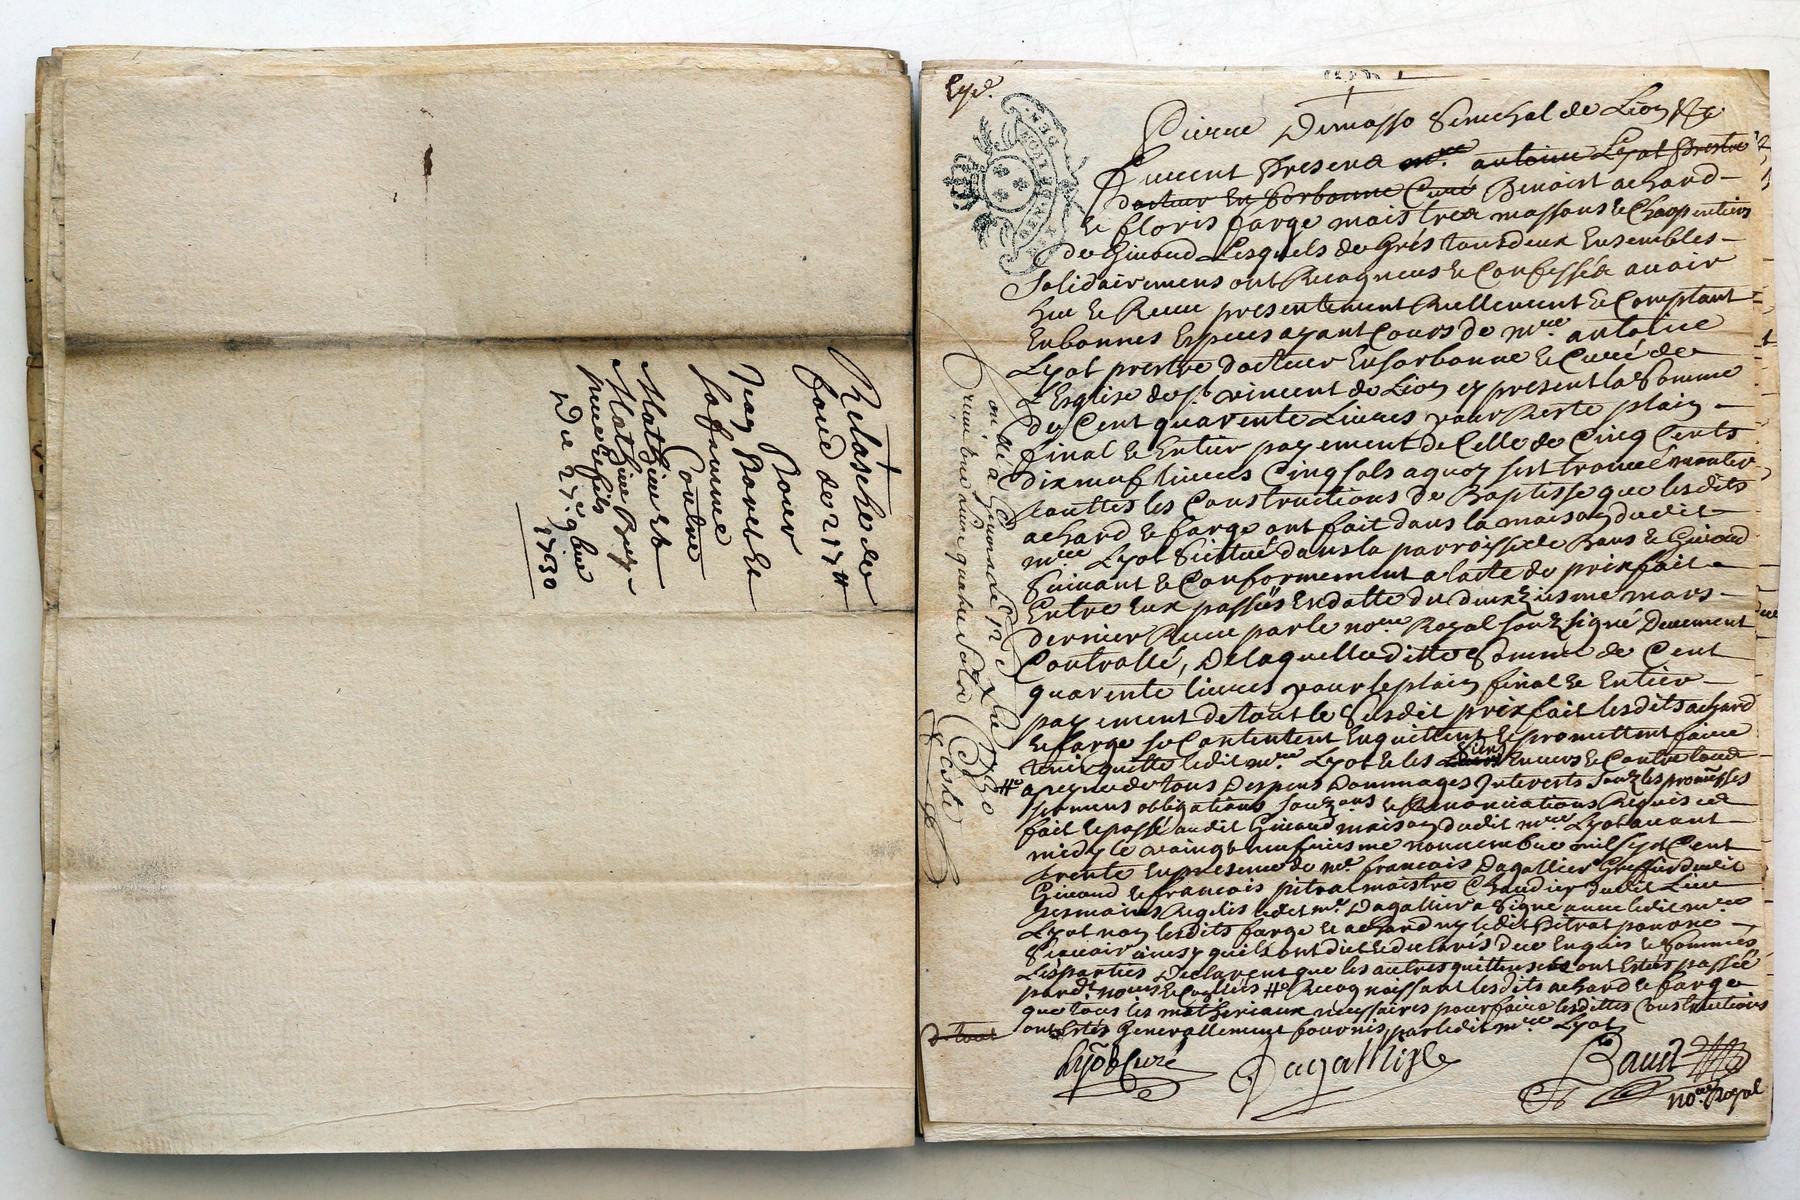 Relaschè de
fond de 217 ₶
Pour
Jean Borel Et
Sa femme
Contre
Mathieu Et
Mathieu
pere & fils
Du 27e. 9bre
1730
GEN DE LYON
Pierre Demasso Senechal de Lion &c
furent Presens mre antoine Lyot Prestre
docteur En Sorbonne Curé Benoist achard
& floris farge maistres massons & Charpentiers
de Givord Lesquels de Grés tous deux Ensembles
Solidairement ont Recogneus & Confessés avoir
heu & Receu presentement Reellement & Comptant
En bonnes Especes ayant Cours de mre antoine
Lyot prestre docteur En sorbonne & Curé de
L'Esglise de st vincent de Lion cy present la Somme
de Cent quarente Livres pour Reste plain
final & Entier payement de Celle de Cinq Cents
dix neuf livres Cinq sols a quoy s'est trouvé monter
touttes les Constructions de Baptisse que lesdits
achard & farge ont fait dans la maison dudit
mre Lyot Scittué dans la parroisse de Bans & Givord
Suivant & Conformement a l'acte de prixfait
Entre Eux passés En datte du deuxziesme mars
dernier Receu par le nore Royal soubzsigné Deuement
Controllé, De laquelle ditte Somme de Cent
quarente livres pour le plain final & Entier
payement de tout le Susdit prixfait lesdits achard
& farge se Contentent En quittent & promettent faire
tenir quitte ledit mre Lyot & les Siens Envers & Contre tous
a peyne de tous Despens Dommages Interests soubz les promesses
sermens obligations & Renonciations Requises
fait & passé audit Givord maison dudit mre Lyot avant
midy le vaingt neufviesme novembre mil sept Cent
trente En presence de me. francois Dagallier Greffier dudit
Givord & francois pitrat maistre dudit Lieu
tesmoins Requis ledit me. Dagallier a Signé avec ledit mre
Lyot non lesdits farge & achard ny ledit Pitrat pour ne
Scavoir ainsy qu'ils ont dit & declarés de ce Enquis & Sommés
Les parties Declarent que les autres quittences ont Estés passée
Recognoissant lesdits achard & farge
que tous les matheriaux nécessaires pour faire lesdittes Constructions
ont Estés Generallement fournis par ledit mre Lyot
Lyot Curé
Dagallier
Baud
nore. Royal
Con llé a Givord le Xbre 1730
receu douze quatre sols